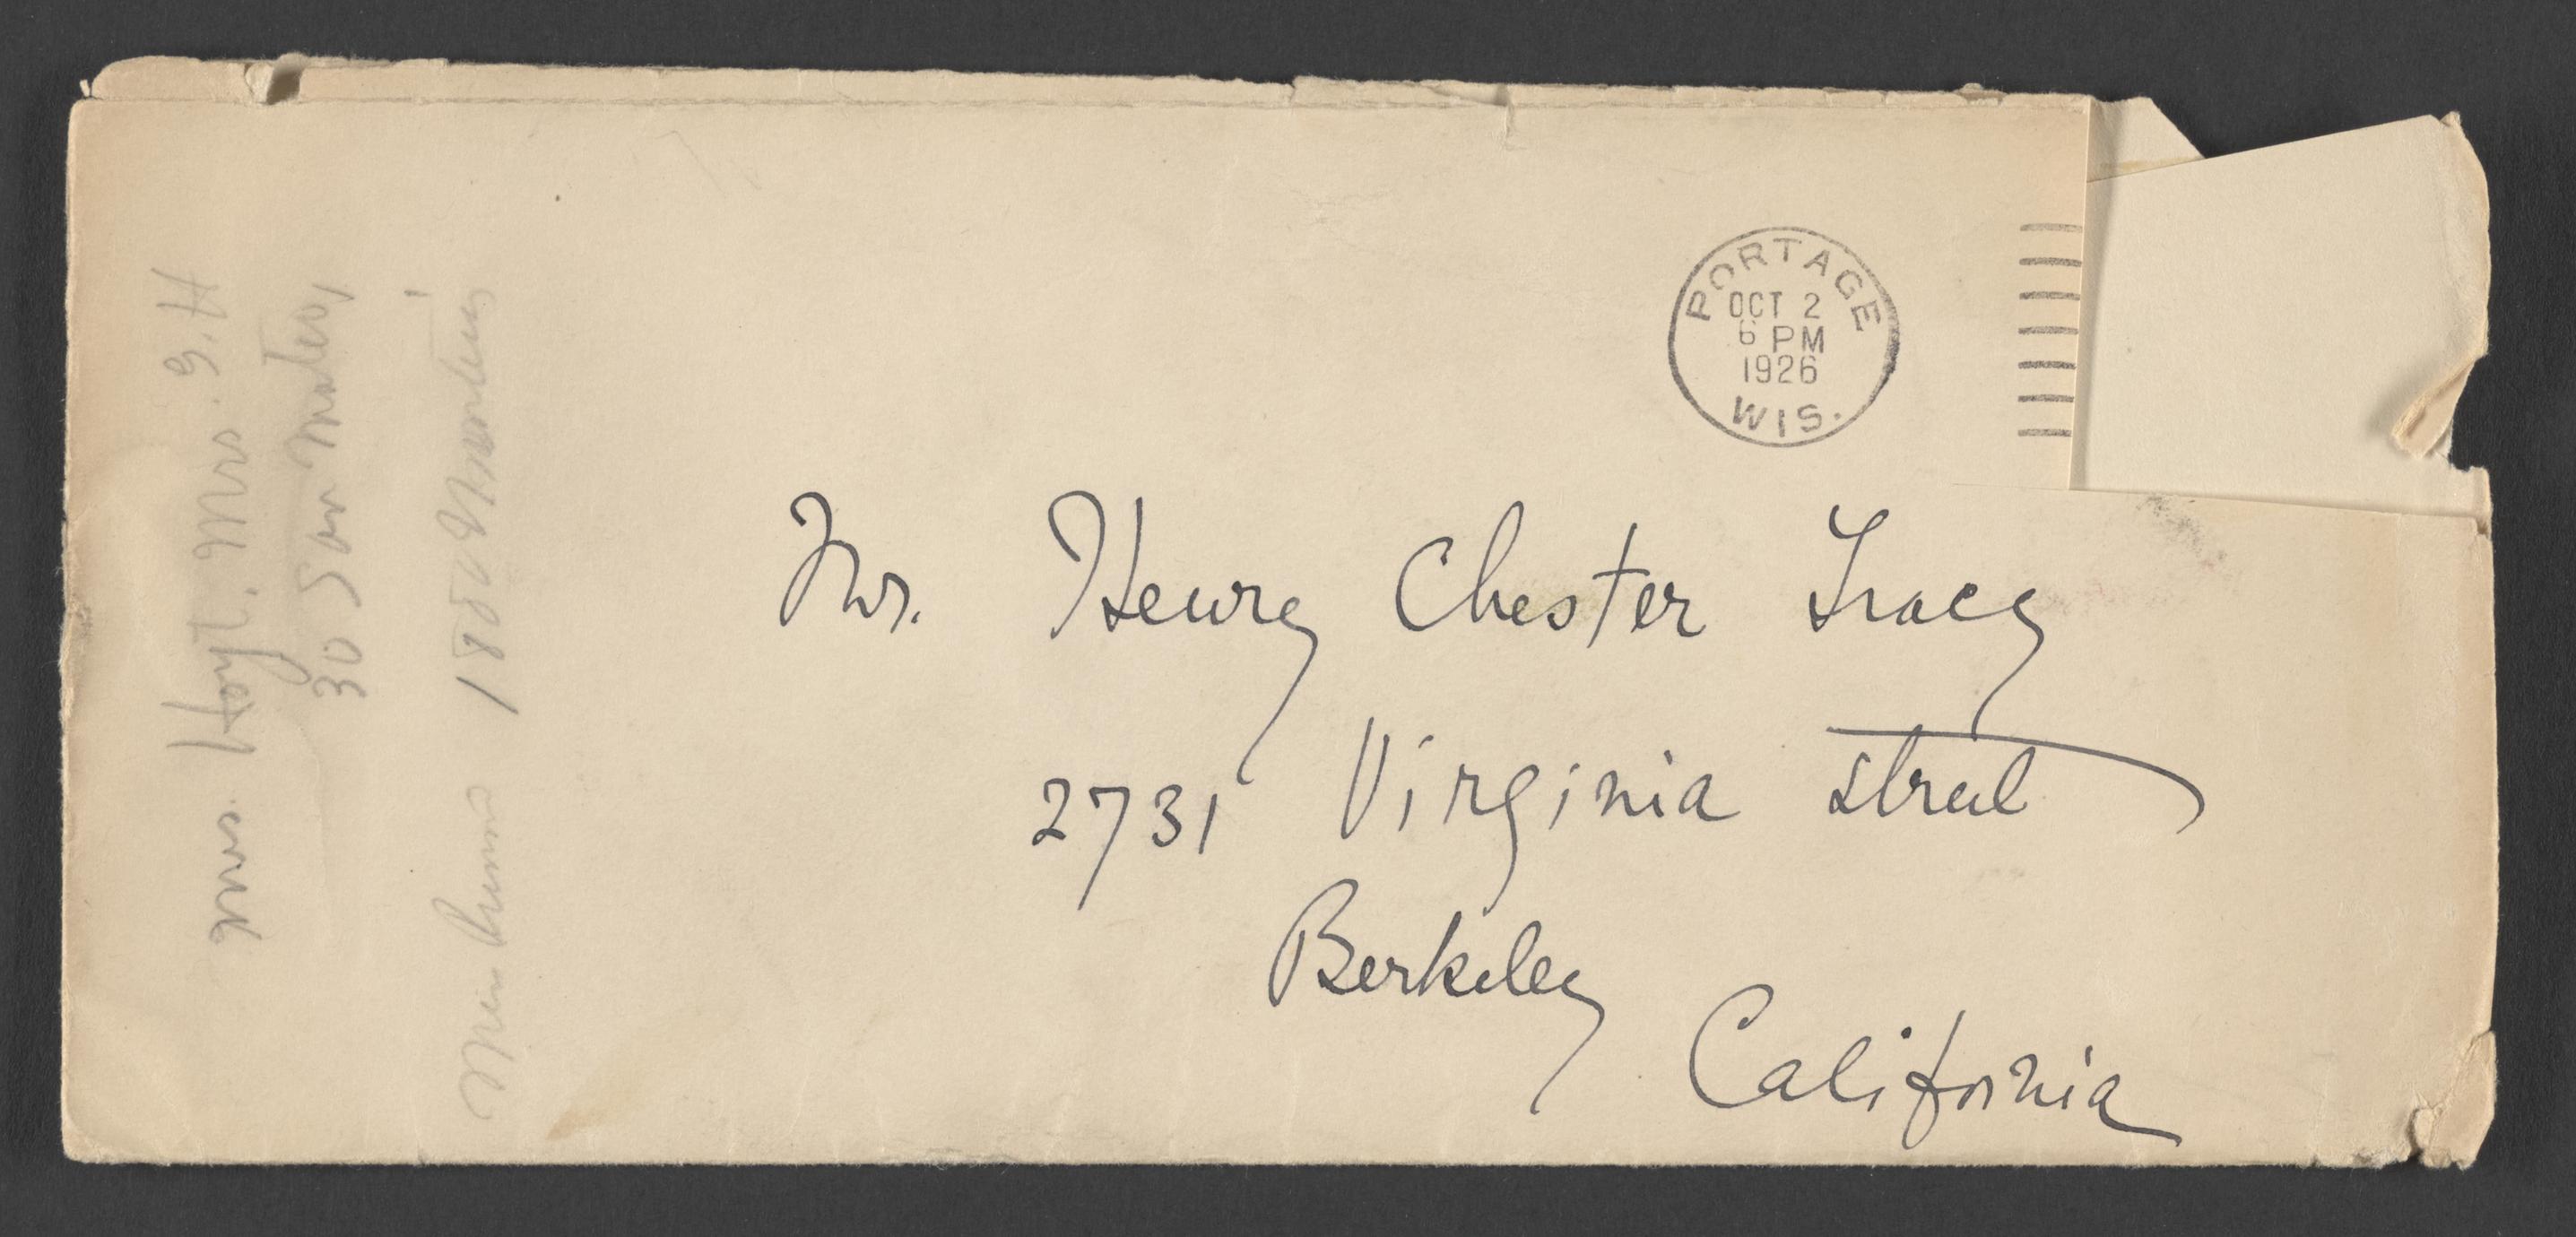 PORTAGE
OCT 2
6 PM
1926
WIS.
Mr. Henry Chester Tracy
2731 Virginia street
Berkeley
California
Mrs. Hoyt. Mrs. G. H
30 San Mateo,
Miss 1880